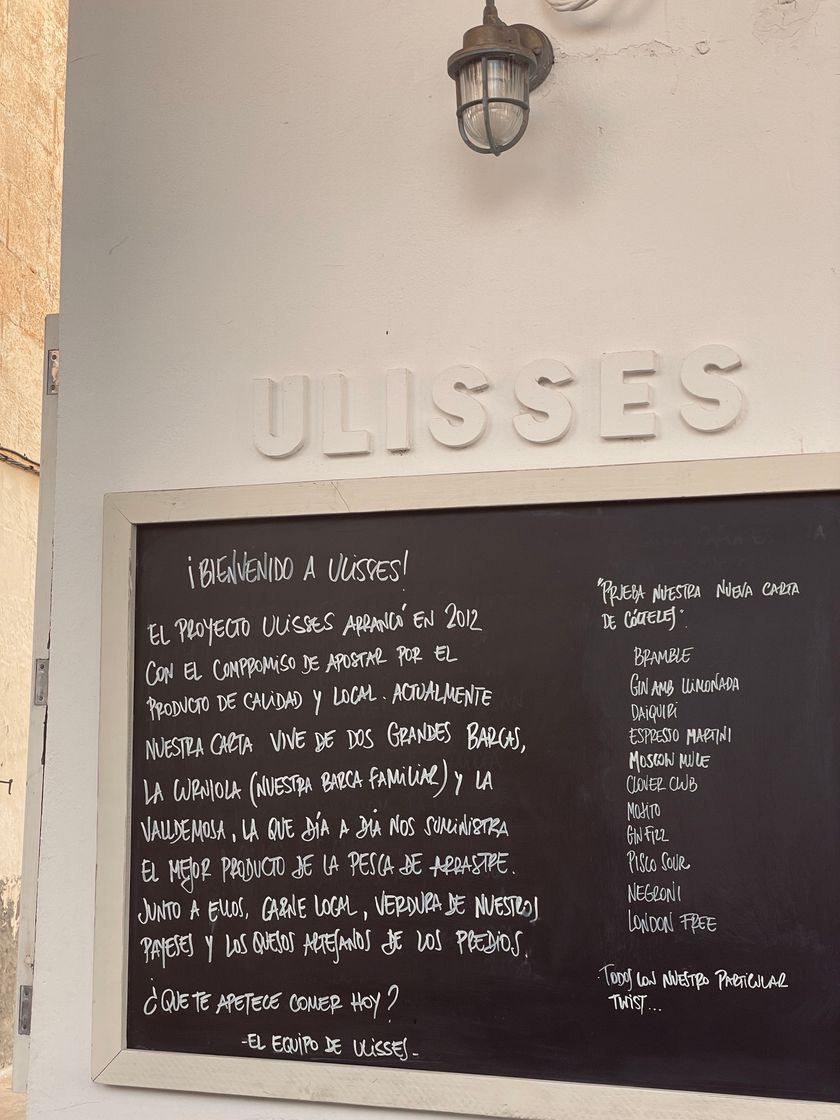 ULISSES
¡BIENVENIDO A ULISSES!
EL PROYECTO ULISSES ARRANCÓ EN 2012
CON EL COMPROMISO DE APOSTAR POR EL
PRODUCTO DE CALIDAD Y LOCAL. ACTUALMENTE
NUESTRA CARTA VIVE DE DOS GRANDES BARCAS,
LA CURNIOLA (NUESTRA BARCA FAMILIAR) Y LA
VALLDEMOSA, LA QUE DÍA A DÍA NOS SUMINISTRA
EL MEJOR PRODUCTO DE LA PESCA DE ARRASTRE.
JUNTO A ELLOS, CARNE LOCAL, VERDURA DE NUESTROS
PAYESES Y LOS QUESOS ARTESANOS DE LOS PREDIOS.
¿QUE TE APETECE COMER HOY?
-EL EQUIPO DE ULISSES-
"PRUEBA NUESTRA NUEVA CARTA
DE CÓCTELES".
BRAMBLE
GIN AMB LLIMONADA
DAIQUIRI
ESPRESSO MARTINI
MOSCOW MULE
CLOVER CLUB
MOJITO
GIN FIZZ
PISCO SOUR
NEGRONI
LONDON FREE
·TODOS CON NUESTRO PARTICULAR
TWIST...